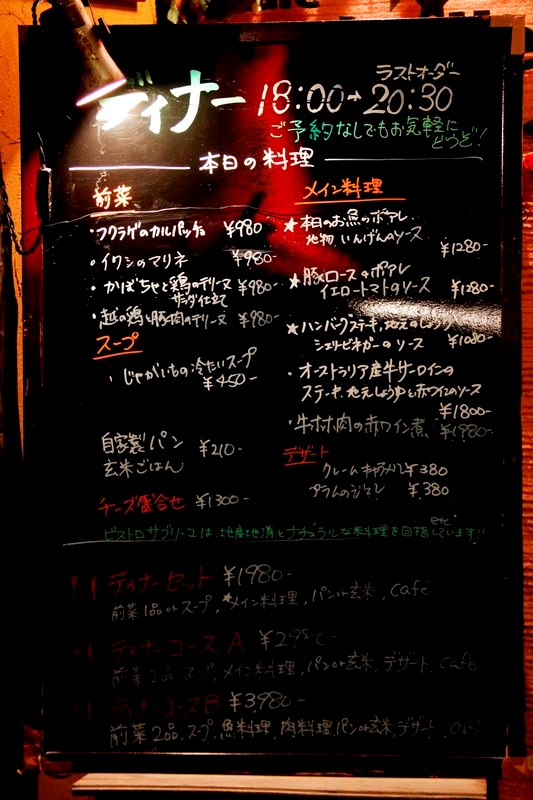 ディナー 18:00→20:30
ラストオーダー
ご予約なしでもお気軽に
どうぞ!
本日の料理
前菜
・フクラゲのカルパッチョ ¥980
・イワシのマリネ ¥980-
・かぼちゃと鶏のテリーヌ
サラダ仕立て ¥980-
・越の鶏と豚肉のテリーヌ ¥980-
スープ
・じゃがいもの冷たいスープ
¥450-
自家製パン ¥210-
玄米ごはん
チーズ盛合せ ¥1300-
メイン料理
★本日のお魚のポアレ
地物 いんげんのソース
¥1280-
★豚ロースのポアレ
イエロートマトのソース ¥1280-
★ハンバーグステーキ、地元のしょうゆ
シェリビネガーのソース ¥1080-
・オーストラリア産牛サーロインの
ステーキ、地元しょうゆと赤ワインのソース
¥1800-
・牛ホホ肉の赤ワイン煮 ¥1980-
デザート
クレームキャラメル ¥380
プラムのジュレ ¥380
etc
ビストロサブリーユは、地産地消とナチュラルな料理を目指しています!!
ディナーセット ¥1980-
前菜1品orスープ、★メイン料理、パンor玄米、café
ディナーコースA
前菜2品、スープ、メイン料理、パンor玄米、デザート、café
ディナーコースB ¥3980-
前菜2品、スープ、魚料理、肉料理、パンor玄米、デザート、café